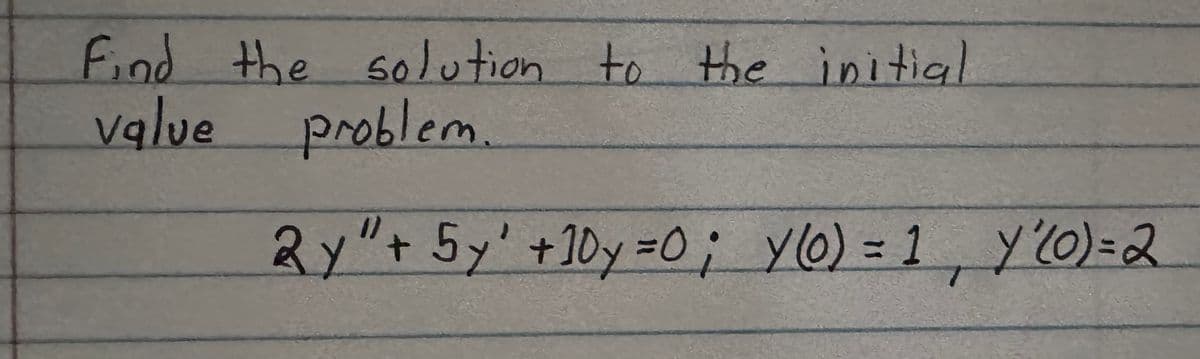 Find the solution to the initial
value problem.
2y"+ 5y' +10y=0; y(0) = 1, y'(0)=2